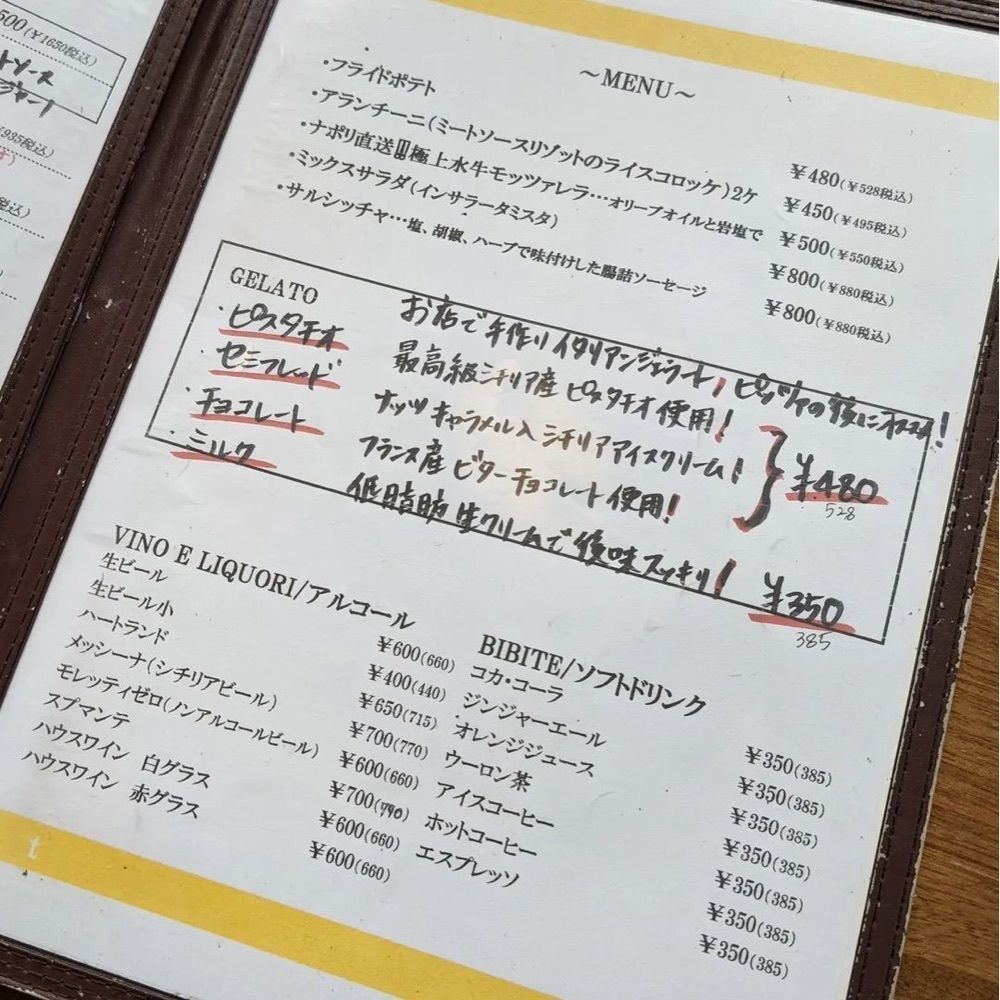 500(¥1650税込)
トソース
ジャー!
935税込)
税込)
税込)
~MENU~
・フライドポテト ¥480(¥528税込)
・アランチーニ(ミートソースリゾットのライスコロッケ)2ケ ¥450(¥495税込)
・ナポリ直送!!!極上水牛モッツァレラ…オリーブオイルと岩塩で ¥500(¥550税込)
・ミックスサラダ(インサラータミスタ) ¥800(¥880税込)
・サルシッチャ…塩、胡椒、ハーブで味付けした腸詰ソーセージ ¥800(¥880税込)
GELATO お店で手作りイタリアンジェラート! ピッツァの後にオススメ!
・ピスタチオ 最高級シチリア産ピスタチオ使用!
・セミフレッド ナッツキャラメル入シチリアアイスクリーム! ¥480
528
・チョコレート フランス産ビターチョコレート使用!
・ミルク 低脂肪生クリームで後味スッキリ! ¥350
385
VINO E LIQUORI/アルコール
生ビール ¥600(660)
生ビール小 ¥400(440)
ハートランド ¥650(715)
メッシーナ(シチリアビール) ¥700(770)
モレッティゼロ(ノンアルコールビール) ¥600(660)
スプマンテ ¥700(770)
ハウスワイン 白グラス ¥600(660)
ハウスワイン 赤グラス ¥600(660)
BIBITE/ソフトドリンク
コカ・コーラ ¥350(385)
ジンジャーエール ¥350(385)
オレンジジュース ¥350(385)
ウーロン茶 ¥350(385)
アイスコーヒー ¥350(385)
ホットコーヒー ¥350(385)
エスプレッソ ¥350(385)
t